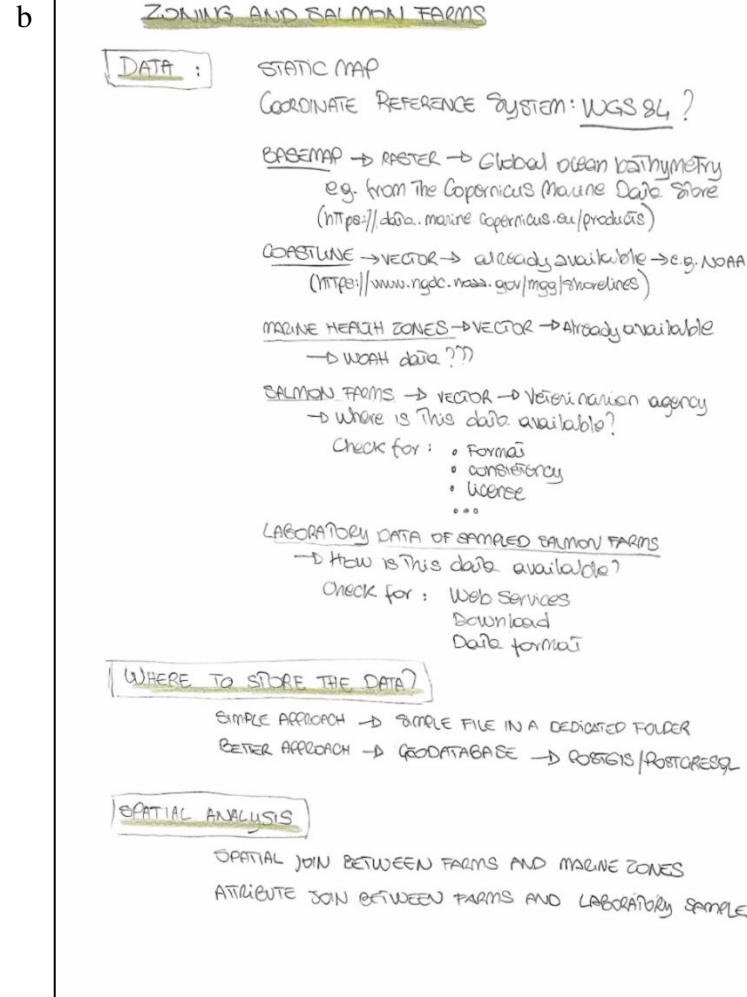 b
ZONING AND SALMON FARMS
DATA :
STATIC MAP
COORDINATE REFERENCE SYSTEM: WGS 84 ?
BASEMAP → RASTER → Global ocean bathymetry
eg. from The Copernicus Marine Data Store
(https://data.marine.copernicus.eu/products)
COASTLINE → VECTOR → already available → e.g. NOAA
(https://www.ngdc.noaa.gov/mgg/shorelines)
MARINE HEALTH ZONES → VECTOR → Already available
→ WOAH data ???
SALMON FARMS → VECTOR → Veterinarian agency
→ Where is This data available?
Check for : • Format
• consistency
• License
...
LABORATORY DATA OF SAMPLED SALMON FARMS
→ How is This data available?
Check for : Web Services
Download
Data format
WHERE TO STORE THE DATA?
SIMPLE APPROACH → SIMPLE FILE IN A DEDICATED FOLDER
BETTER APPROACH → GEODATABASE → POSTGIS/POSTGRESQL
SPATIAL ANALYSIS
SPATIAL JOIN BETWEEN FARMS AND MARINE ZONES
ATTRIBUTE JOIN BETWEEN FARMS AND LABORATORY SAMPLE